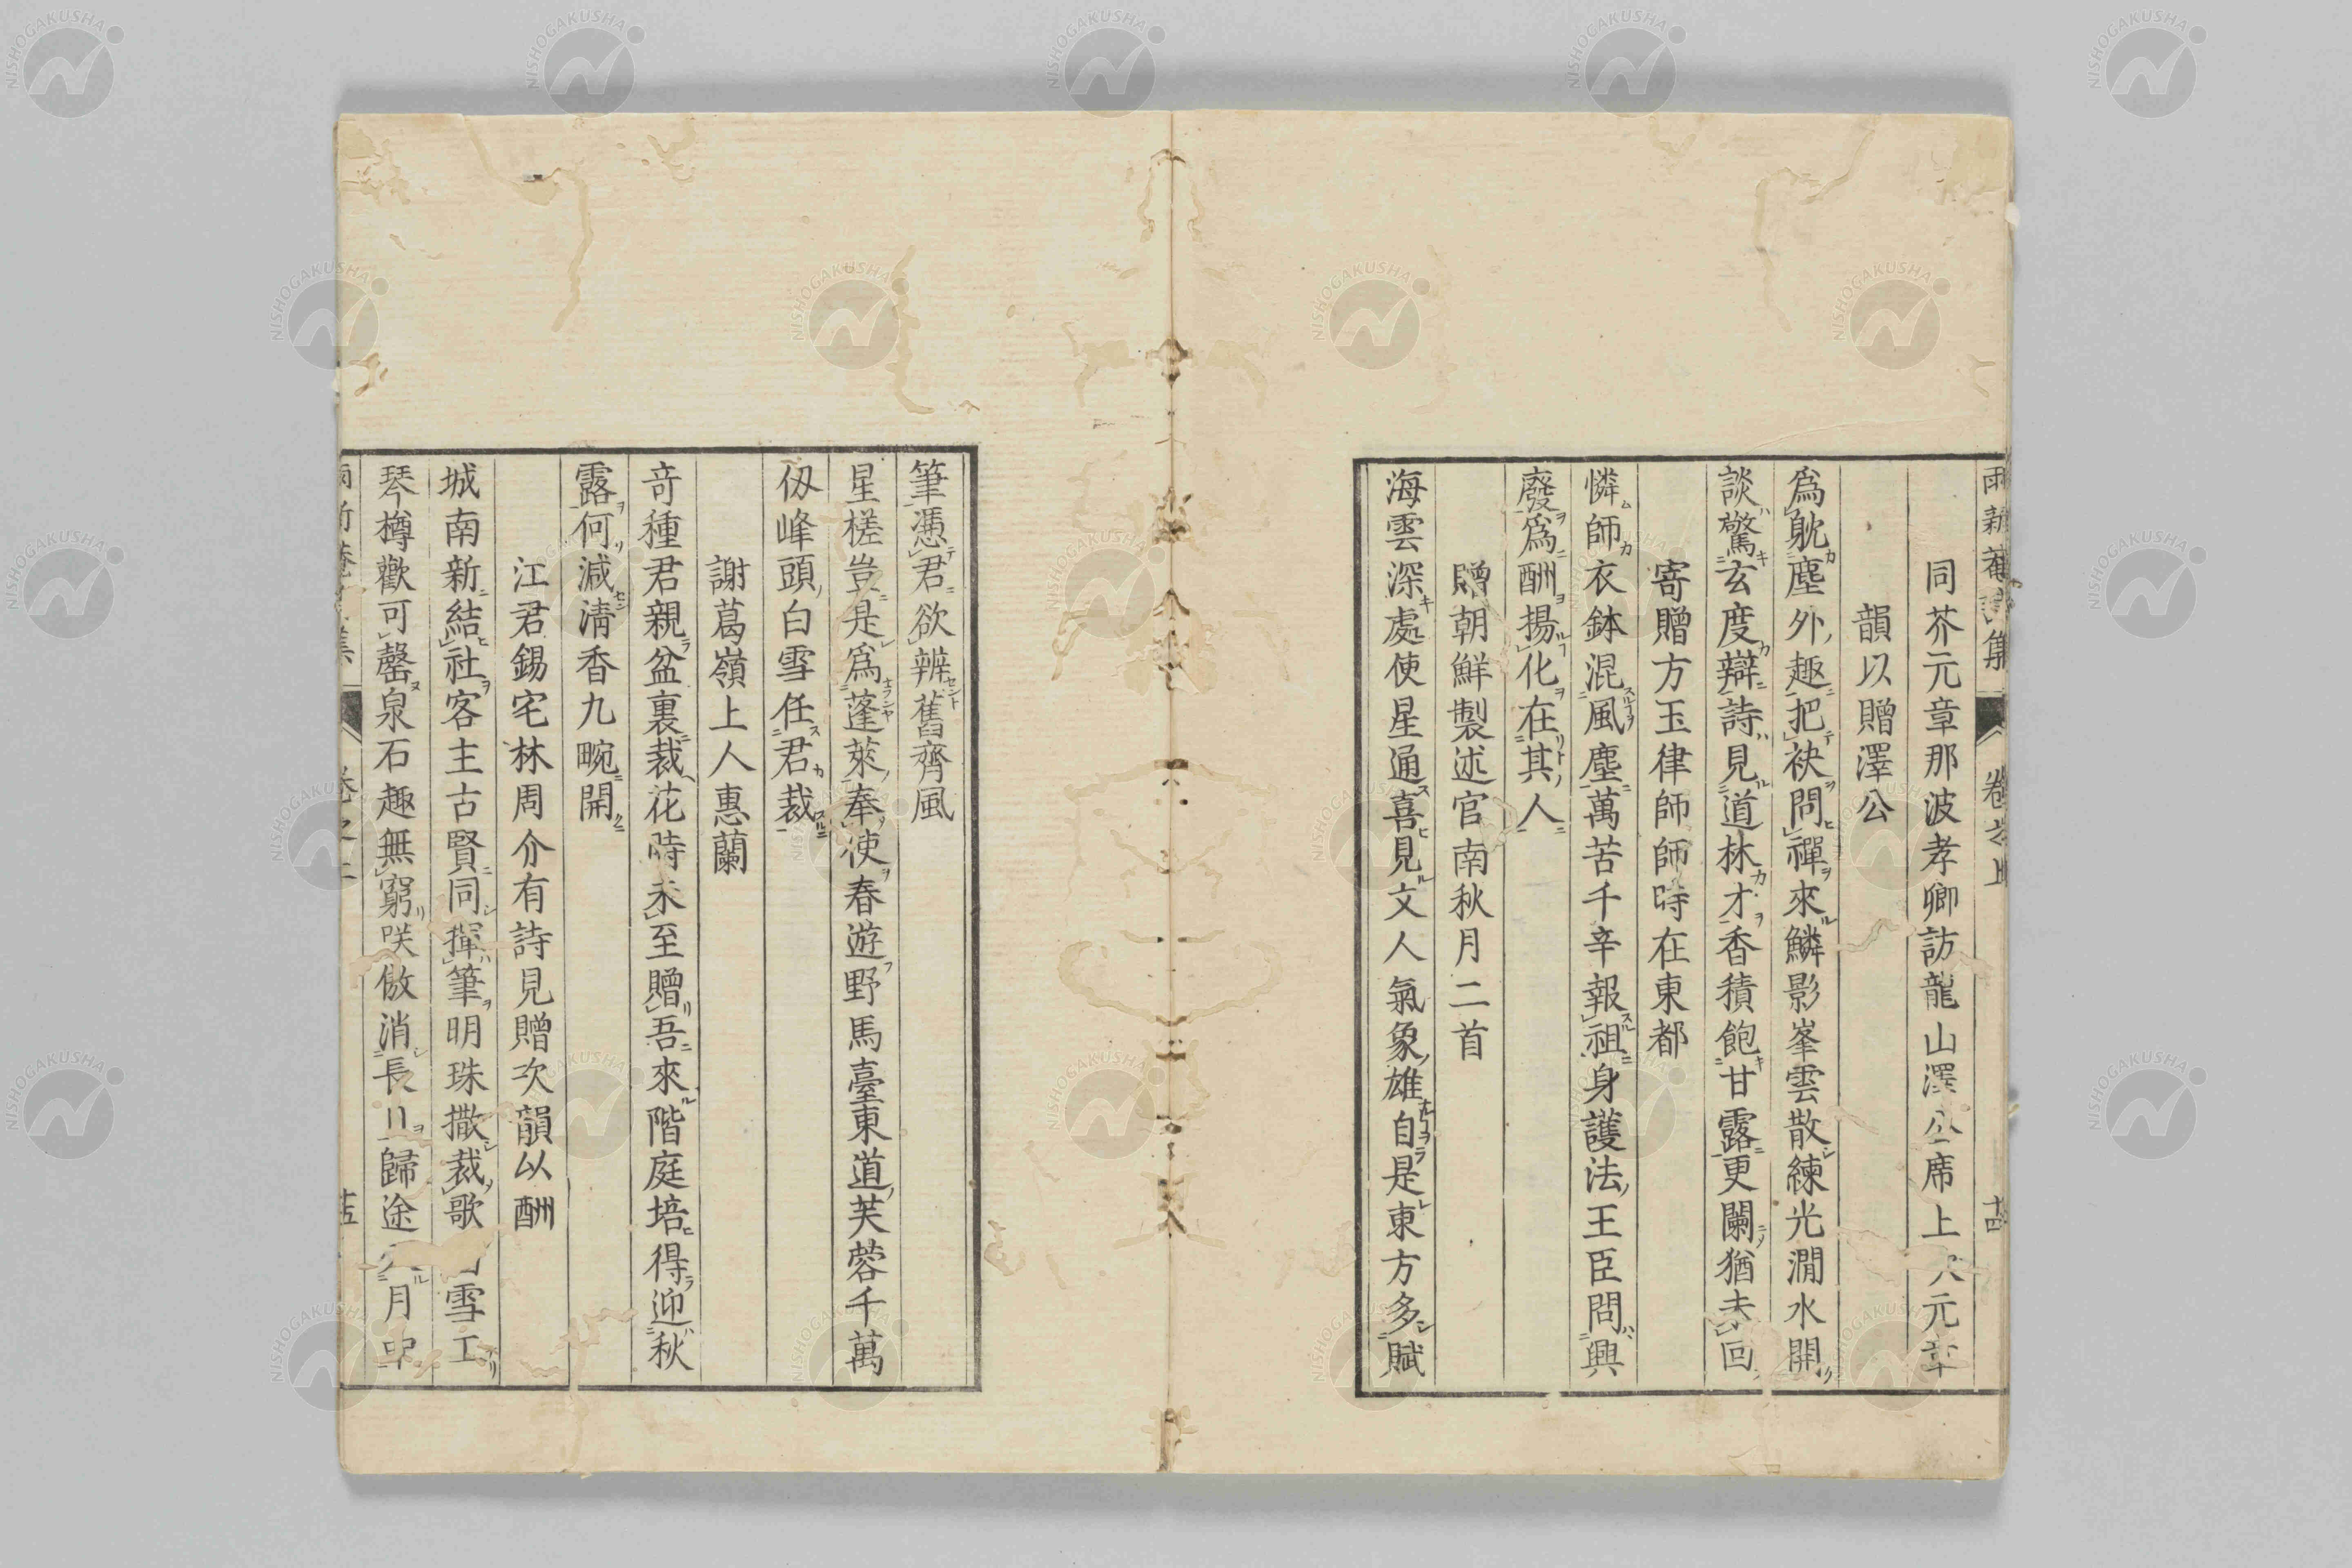 同芥元章那波孝卿訪龍山澤公席上次元章
韻以贈澤公
爲耽塵外趣把袂問禪來鱗影峯雲散練光澗水開
談驚玄度辯詩見道林才香積飽甘露更闌猶未回
寄贈方玉律師師時在東都
憐師衣鉢混風塵萬苦千辛報祖身護法王臣問興
廢爲酬揚化在其人
贈朝鮮製述官南秋月二首
海雲深處使星通喜見文人氣象雄自是東方多賦
筆憑君欲辨舊齊風
星槎豈是爲蓬萊奉使春遊野馬臺東道芙蓉千萬
仭峰頭白雪任君裁
謝葛嶺上人惠蘭
奇種君親盆裏裁花時未至贈吾來階庭培得迎秋
露何減淸香九畹開
江君錫宅林周介有詩見贈次韻以酬
城南新結社客主古賢同揮筆明珠撒裁歌雪工
琴樽歡可罄泉石趣無窮咲傲消長日歸途月中